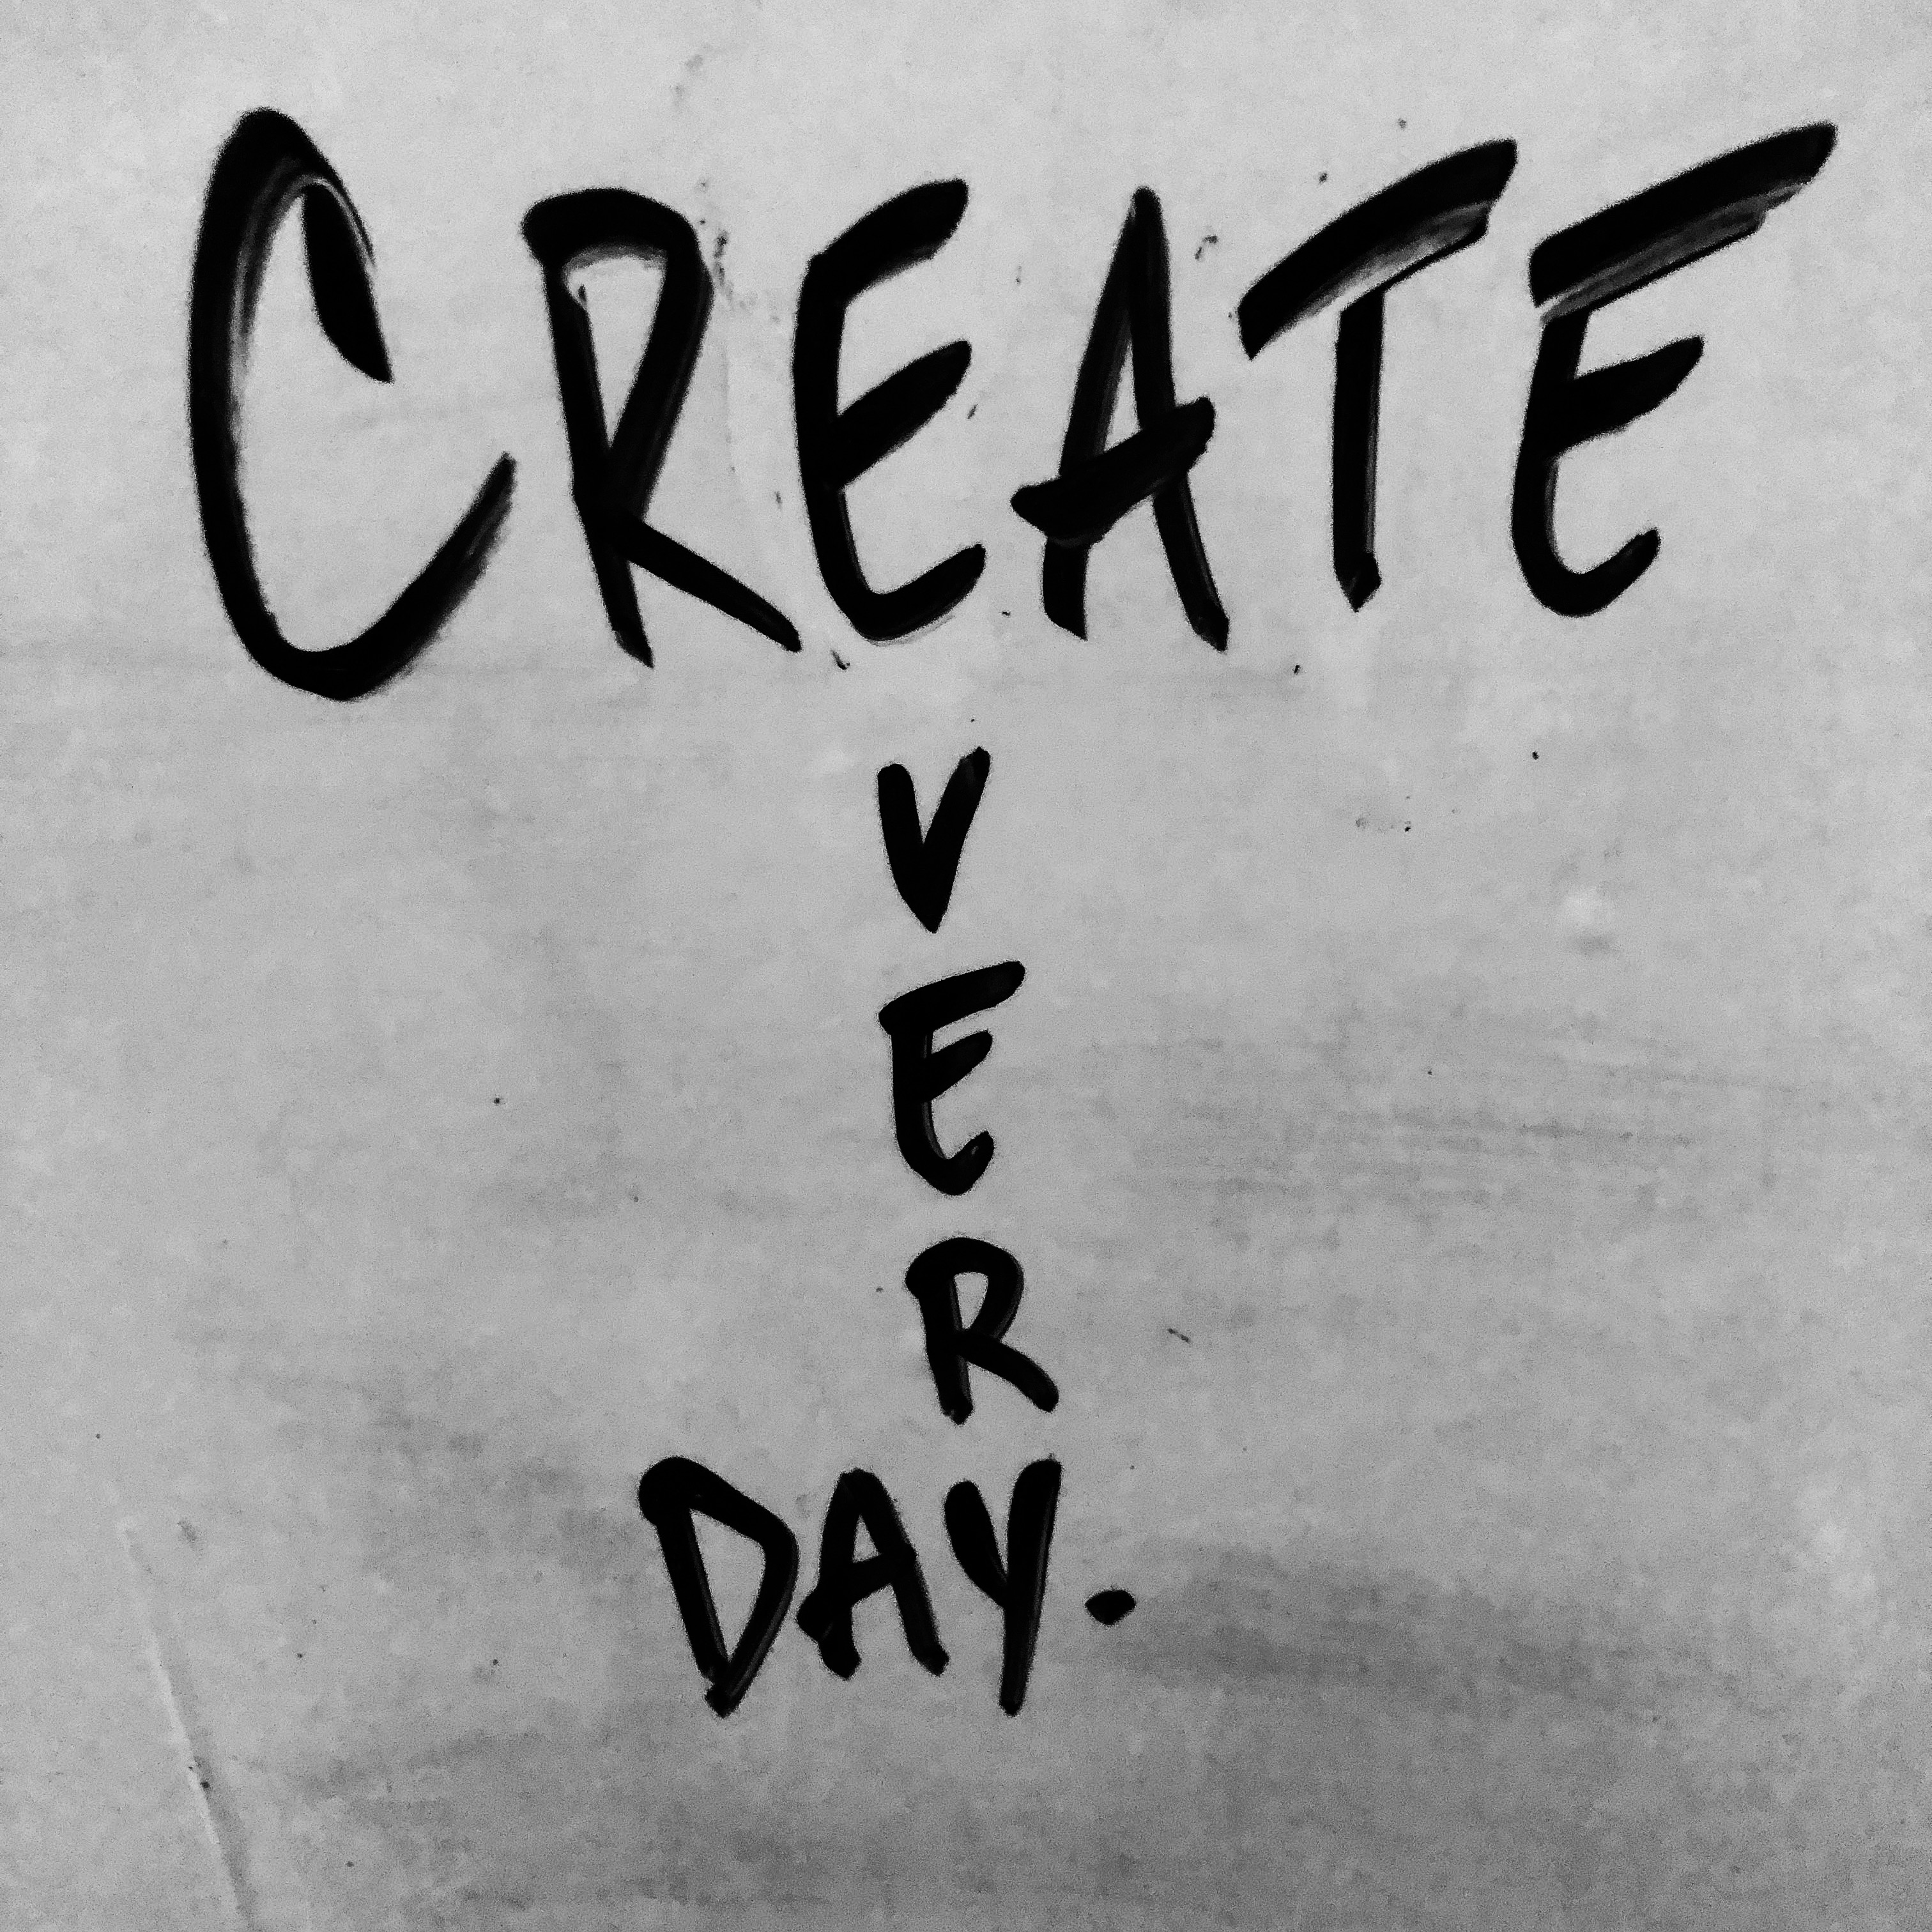 CREATE
V
E
R
DAY.